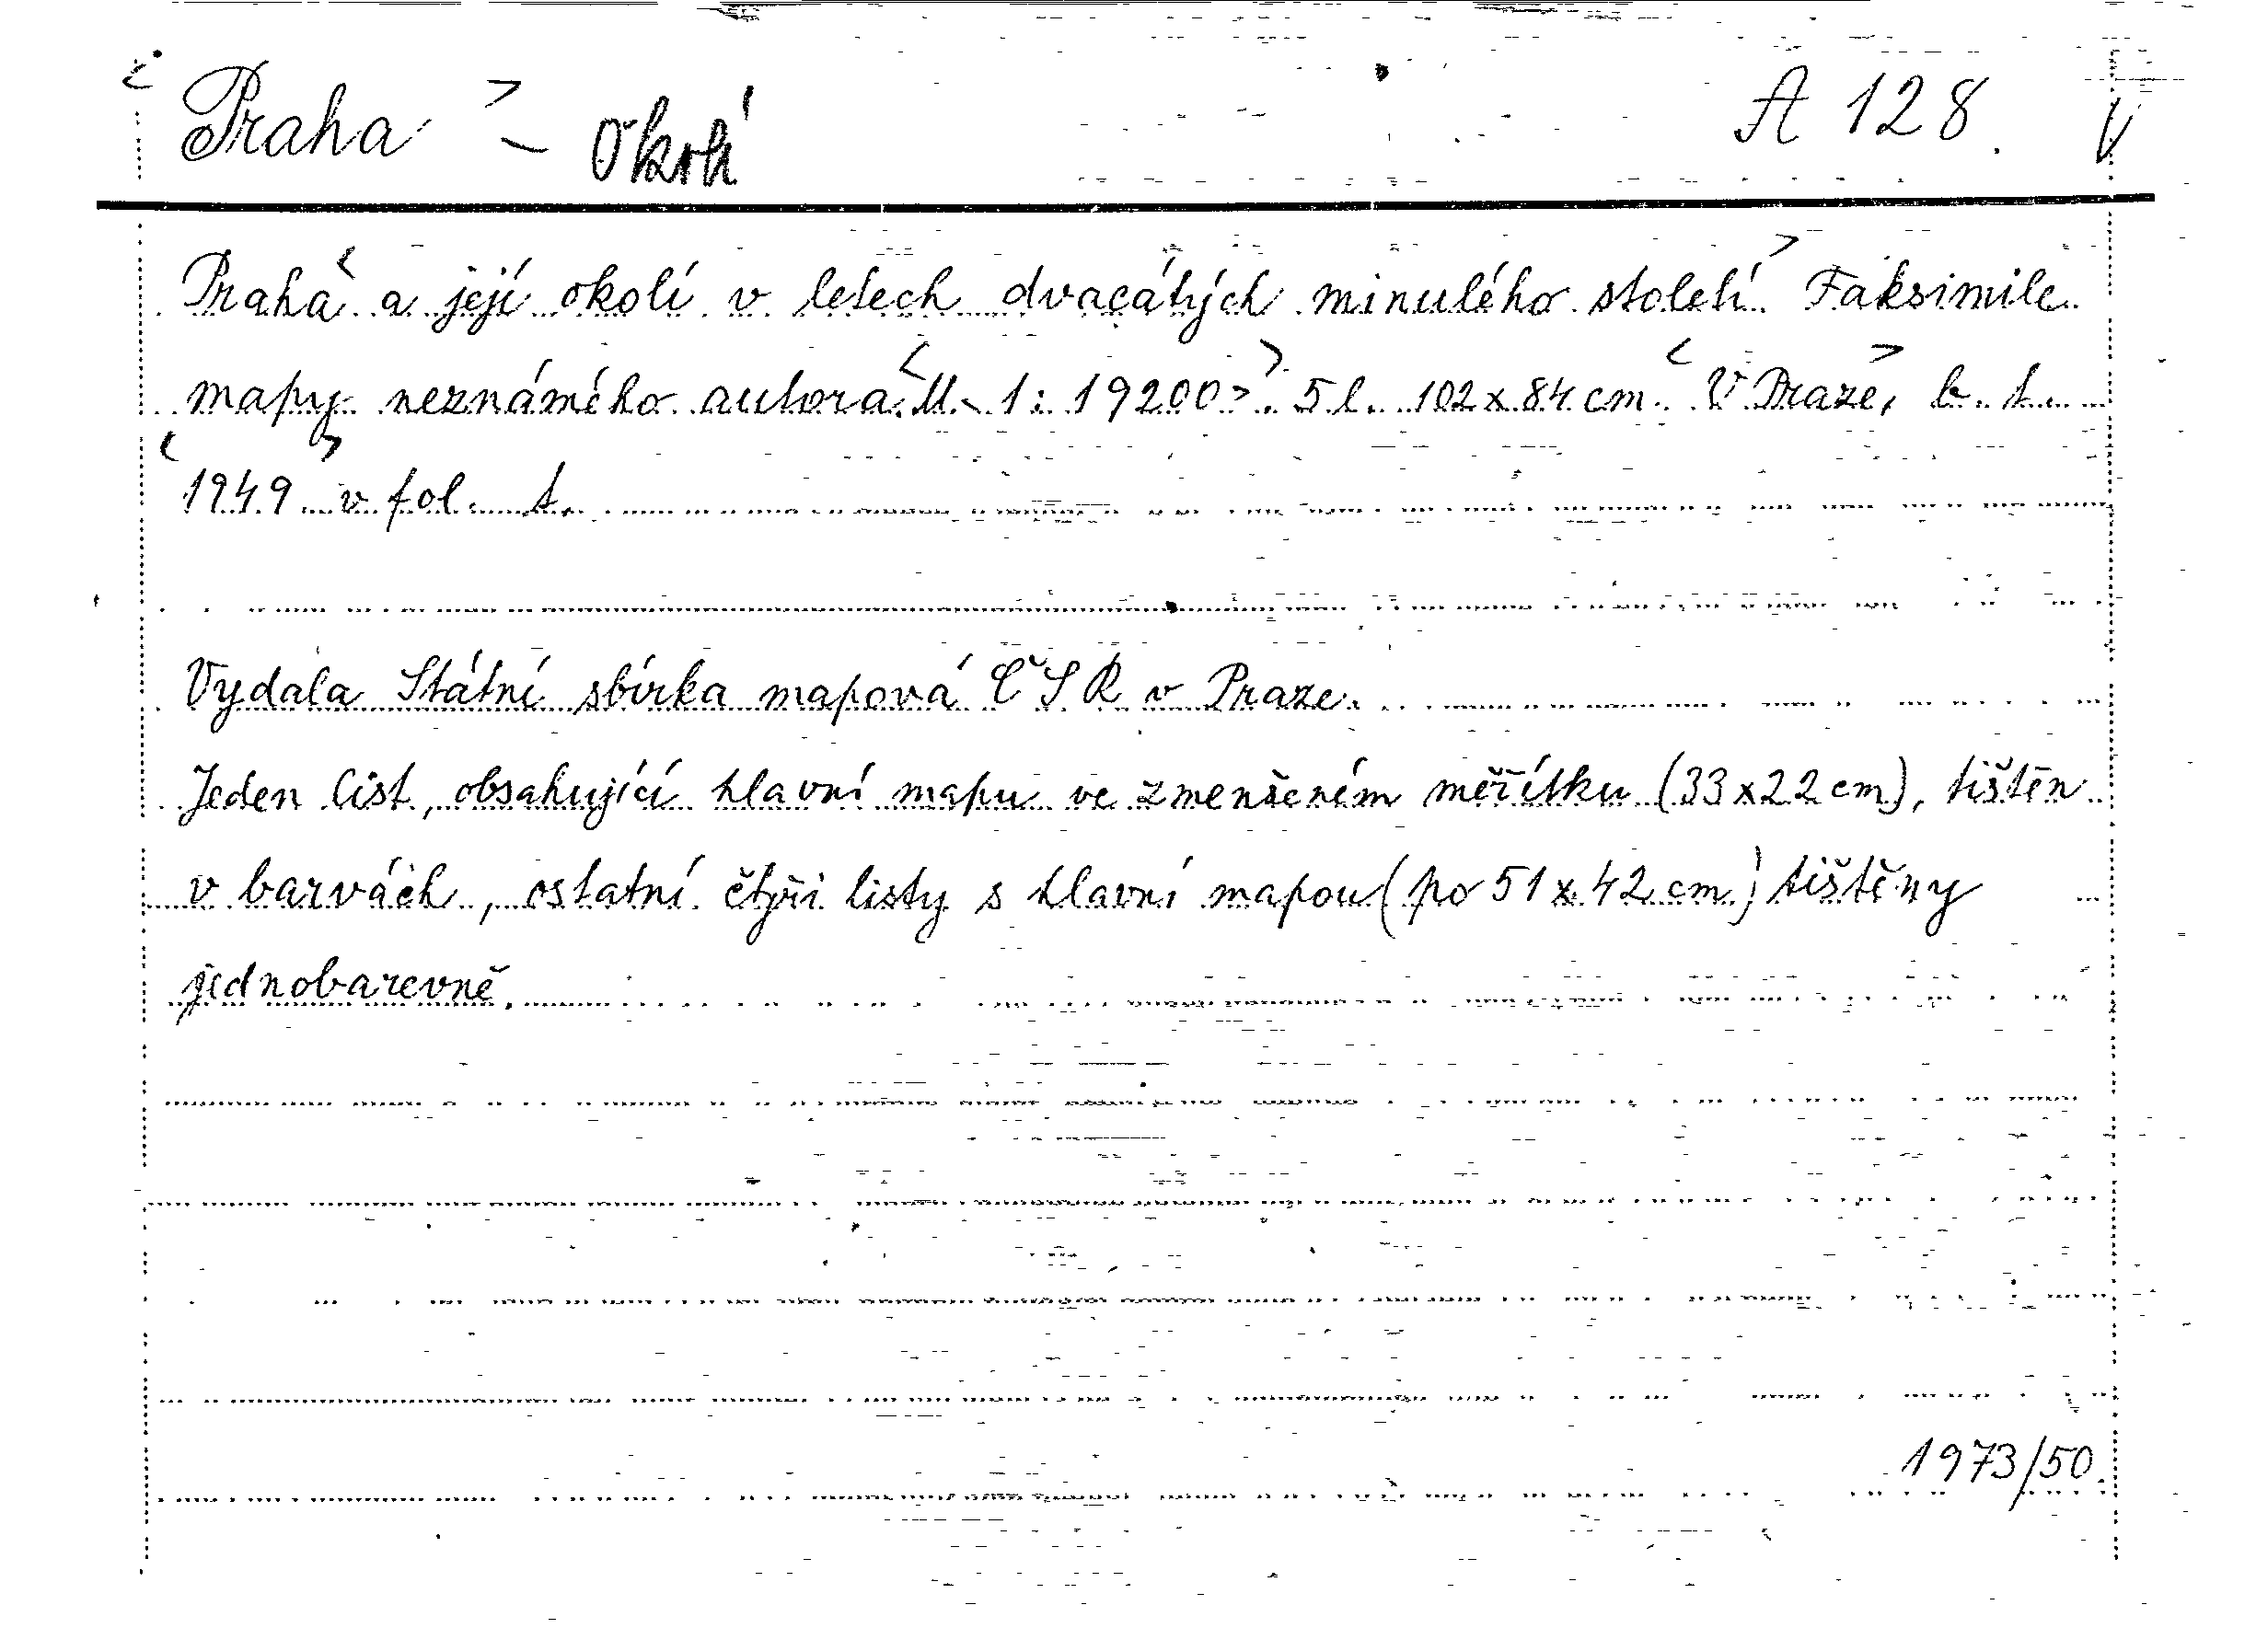 <Praha> - okolí A 128. V
Praha <a její okolí v letech dvacátých minulého století> Faksimile
mapy neznámého autora. <M. 1 : 19200>. 5 l. 102 x 84 cm. <V Praze>, b. t.
<1949> v fol. t.
Vydala Státní sbírka mapová ČSR v Praze.
Jeden list, obsahující hlavní mapu ve zmenšeném měřítku (33 x 22 cm), tištěn
v barvách, ostatní čtyři listy s hlavní mapou (po 51 x 42 cm) tištěny
jednobarevně.
1973/50.